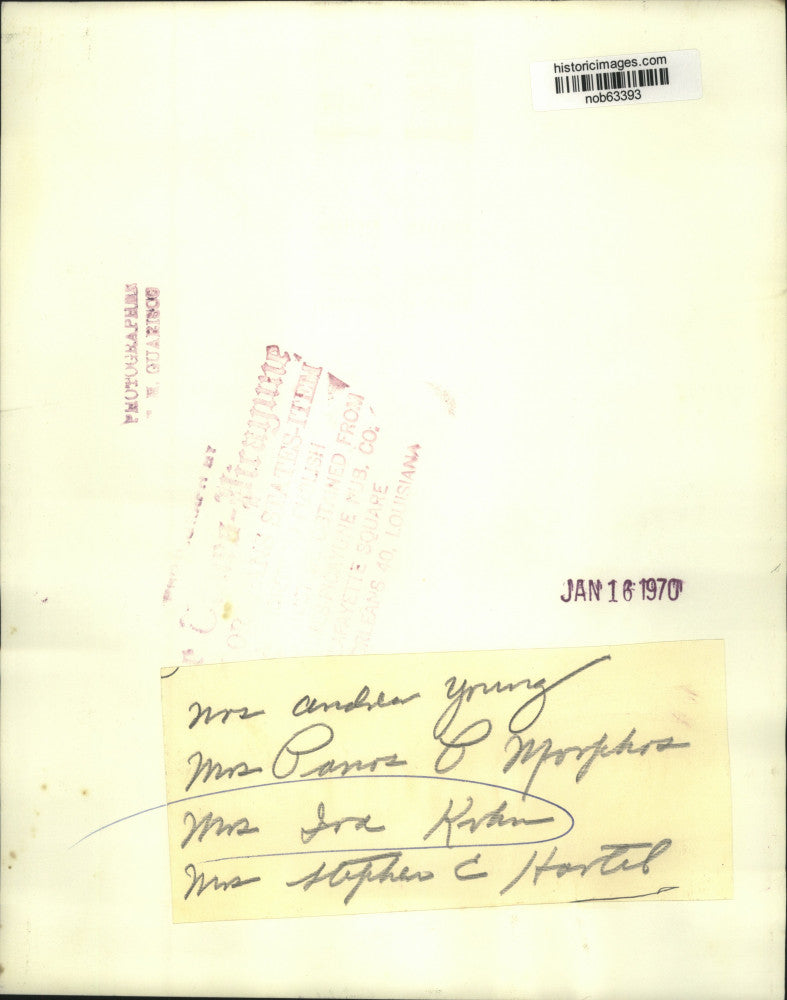 historicimages.com
nob63393
PHOTOGRAPHER
GUARISCO
-Picayune
STATES-ITEM
FROM
PUB. CO.
LAFAYETTE SQUARE
ORLEANS 40, LOUISIANA
JAN 16 1970
Mrs Andrew Young
Mrs Panos C Morphos
Mrs Ira Kohn
Mrs Stephen C Hartel